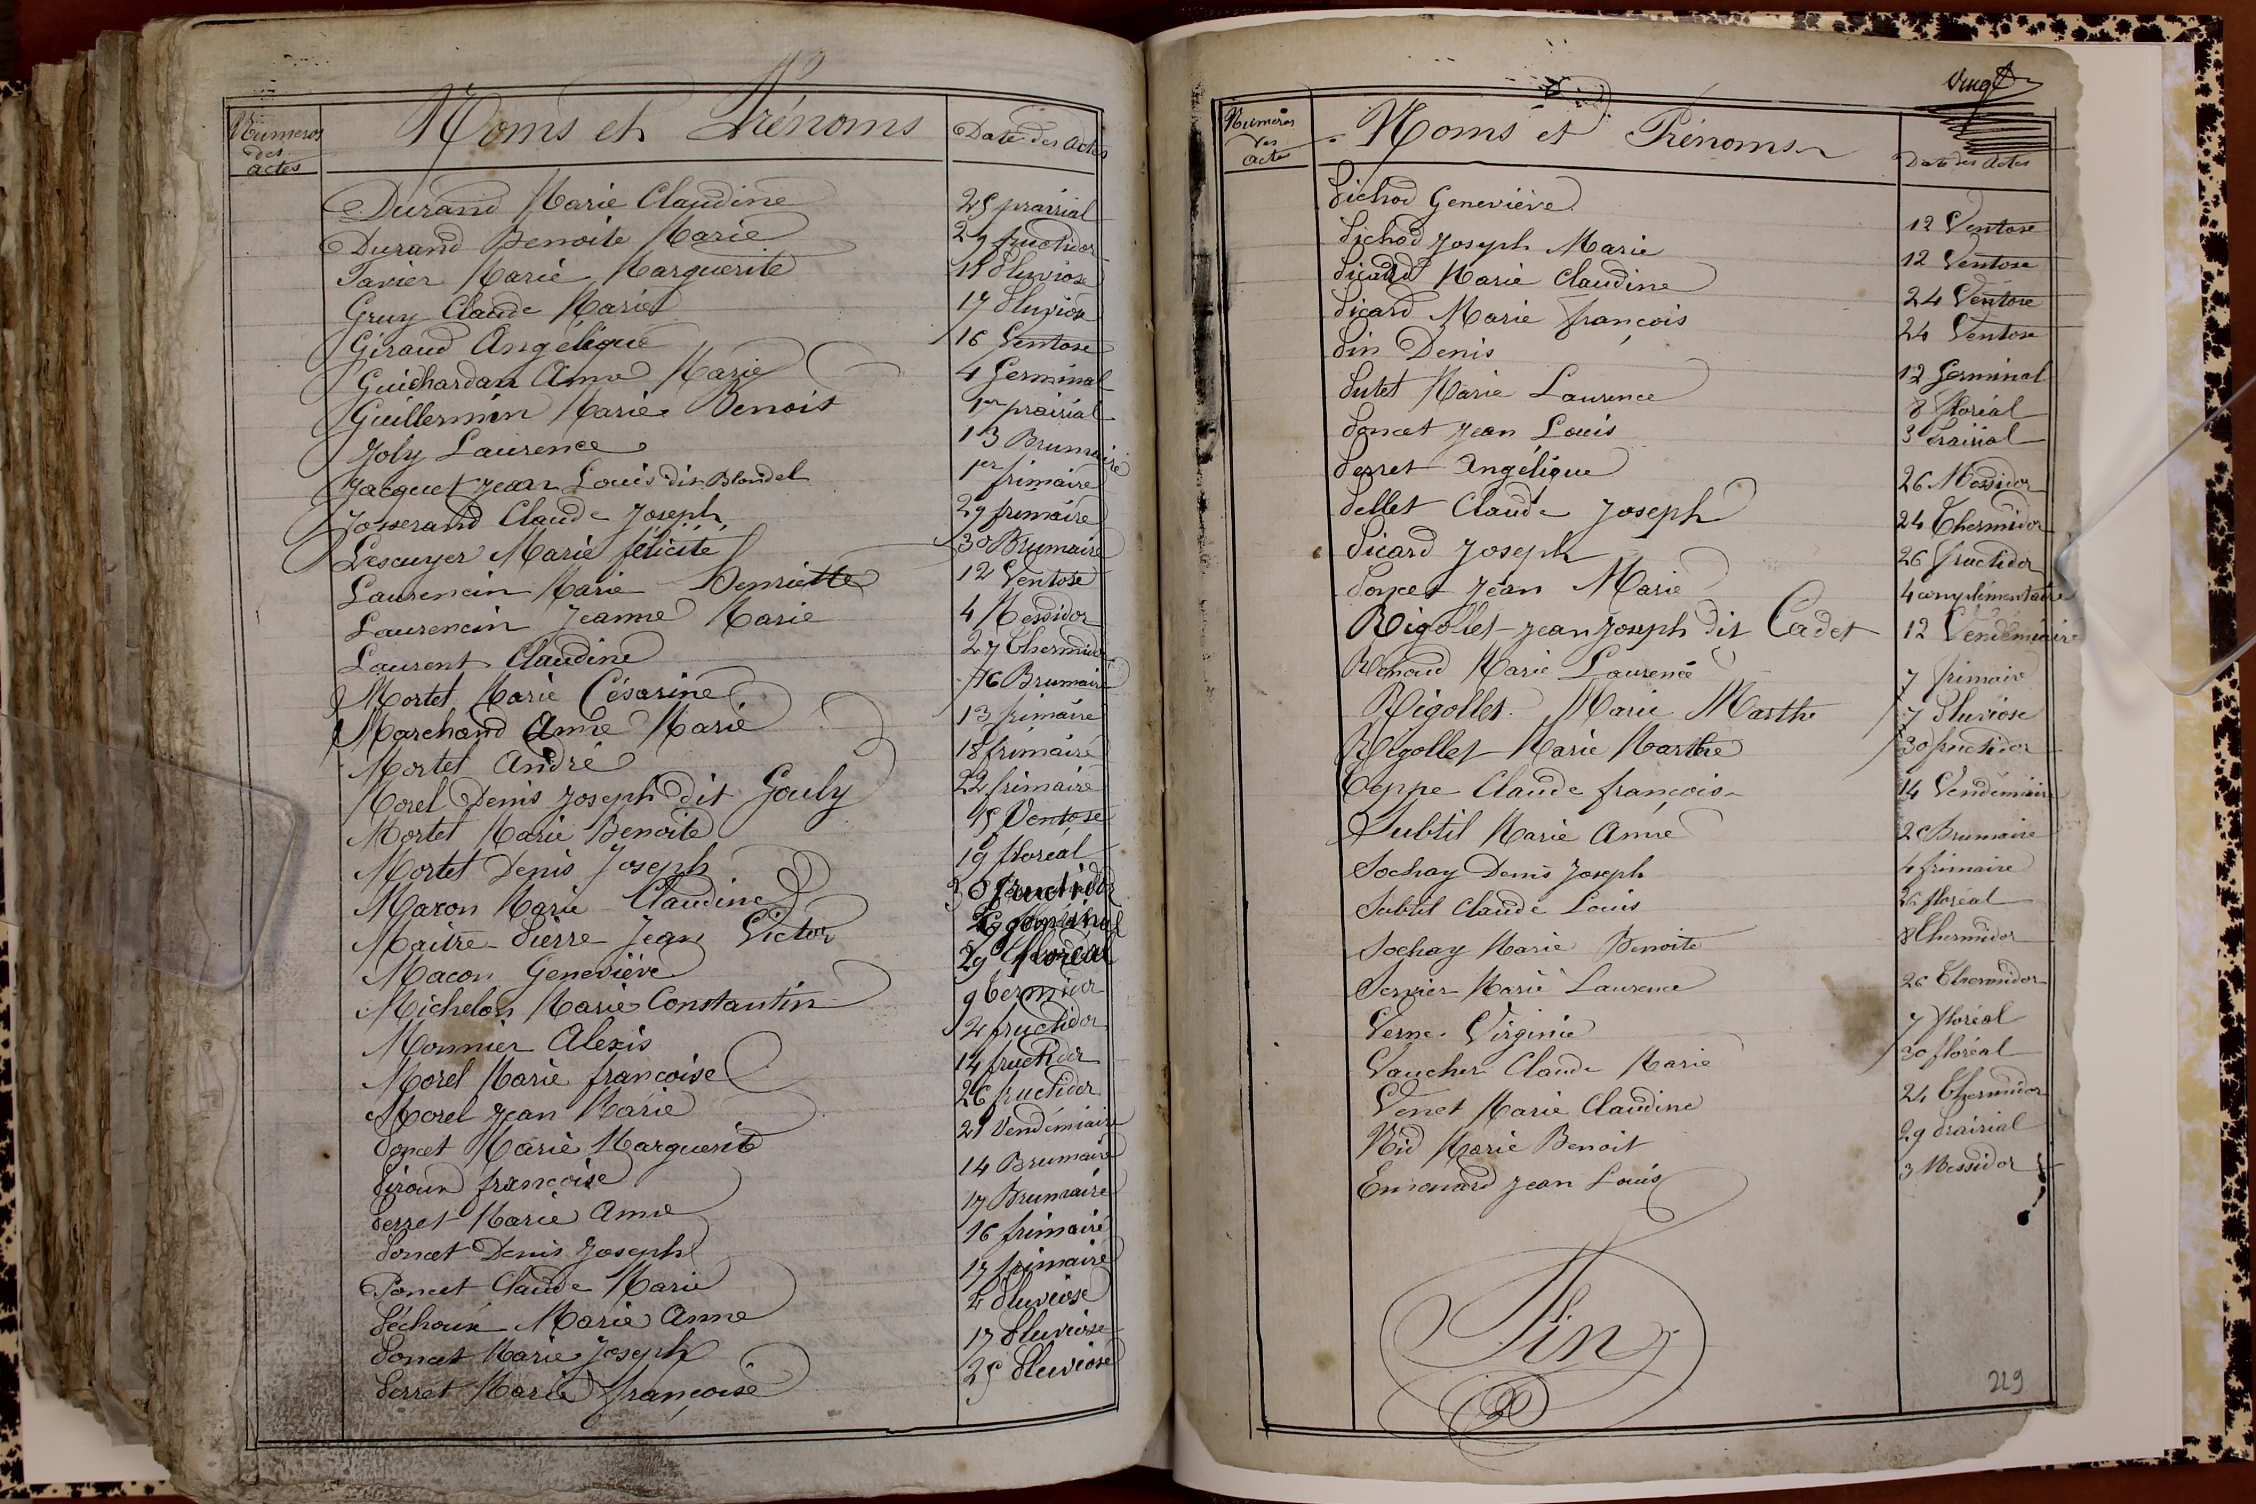 Numeros
des
actes
Noms et Prénoms
Date des Actes
Durand Marie Claudine 25 prairial
Durand Benoite Marie 29 fructidor
Favier Marie Marguerite 18 Pluviose
Gruy Claude Marie 17 Pluviose
Giraud Angélique 16 Ventose
Guichardan Anne Marie 4 Germinal
Guillermin Marie Benoit 1er prairial
Joly Laurence 13 Brumaire
Jacquet Jean Louis dit Blondel 1er frimaire
Josserand Claude Joseph 29 frimaire
Lescuyer Marie félicité 30 Brumaire
Laurencin Marie Henriette 12 Ventose
Laurencin Jeanne Marie 4 Messidor
Laurent Claudine 27 Thermidor
Mortel Marie Césarine 16 Brumaire
Marchand Anne Marie 13 frimaire
Mortel André 18 frimaire
Morel Denis Joseph dit Gouly 22 frimaire
Mortel Marie Benoite 15 Ventose
Mortel Denis Joseph 19 floréal
Maron Marie Claudine 30 fructidor
Maitre Pierre Jean Victor
Macon Geneviève 29 floréal
Michelon Marie Constantin 9 termidor
Monnier Alexis 2 fructidor
Morel Marie francoise 14 fructidor
Morel Jean Marie 26 fructidor
Poncet Marie Marguerite 21 Vendémiaire
Piroud francoise 14 Brumaire
Perret Marie Anne 17 Brumaire
Poncet Denis Joseph 16 frimaire
Poncet Claude Marie 17 frimaire
Péchoux Marie Anne 2 Pluviose
Poncet Marie Joseph 17 Pluviose
Perret Marie françoise 25 Pluviose
Vingt
Numéros
des
Actes
Noms et Prénoms
Date des Actes
Pichod Geneviève 12 Ventose
Pichod Joseph Marie 12 Ventose
Picard Marie Claudine 24 Ventose
Picard Marie françois 24 Ventose
Pin Denis 12 Germinal
Putet Marie Laurence 8 floréal
Poncet Jean Louis 3 Prairial
Perret Angélique 26 Messidor
Pellet Claude Joseph 24 Thermidor
Picard Joseph 26 fructidor
Poncet Jean Marie 4 complémentaire
Rigollet Jean Joseph dit Cadet 12 Vendémiaire
Renaud Marie Laurence 7 frimaire
Rigollet Marie Marthe 7 Pluviose
Rigollet Marie Marthe 30 fructidor
Teppe Claude françois 14 Vendémiaire
Subtil Marie Anne 20 Brumaire
Sochay Denis Joseph 4 frimaire
Subtil Claude Louis 26 floréal
Sochay Marie Benoite 8 Thermidor
Servier Marie Laurence 26 Thermidor
Verne Virginie 7 floréal
Vaucher Claude Marie 30 floréal
Venet Marie Claudine 24 Thermidor
Nid Marie Benoit 29 Prairial
Emonard Jean Louis 3 Messidor
Fin
229